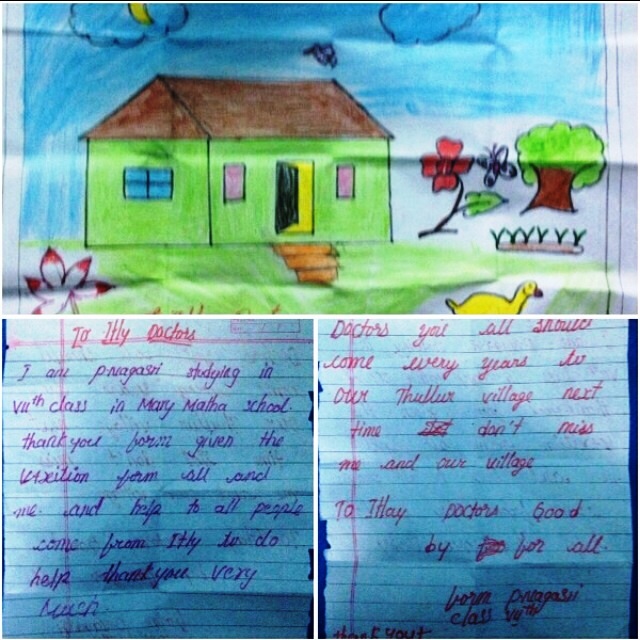 To Itly Doctors
I am p.nagasri studying in
VIIth class in Mary Matha school.
thankyou form given the
form all and
me and help to all people
come from Itly to do
help thankyou very
Much
Doctors you all should
come every years to
Our Thullur village next
time don't miss
me and our village
To Itlay Doctors Good
by for all.
form p.nagasri
class VIIth
thankyou!